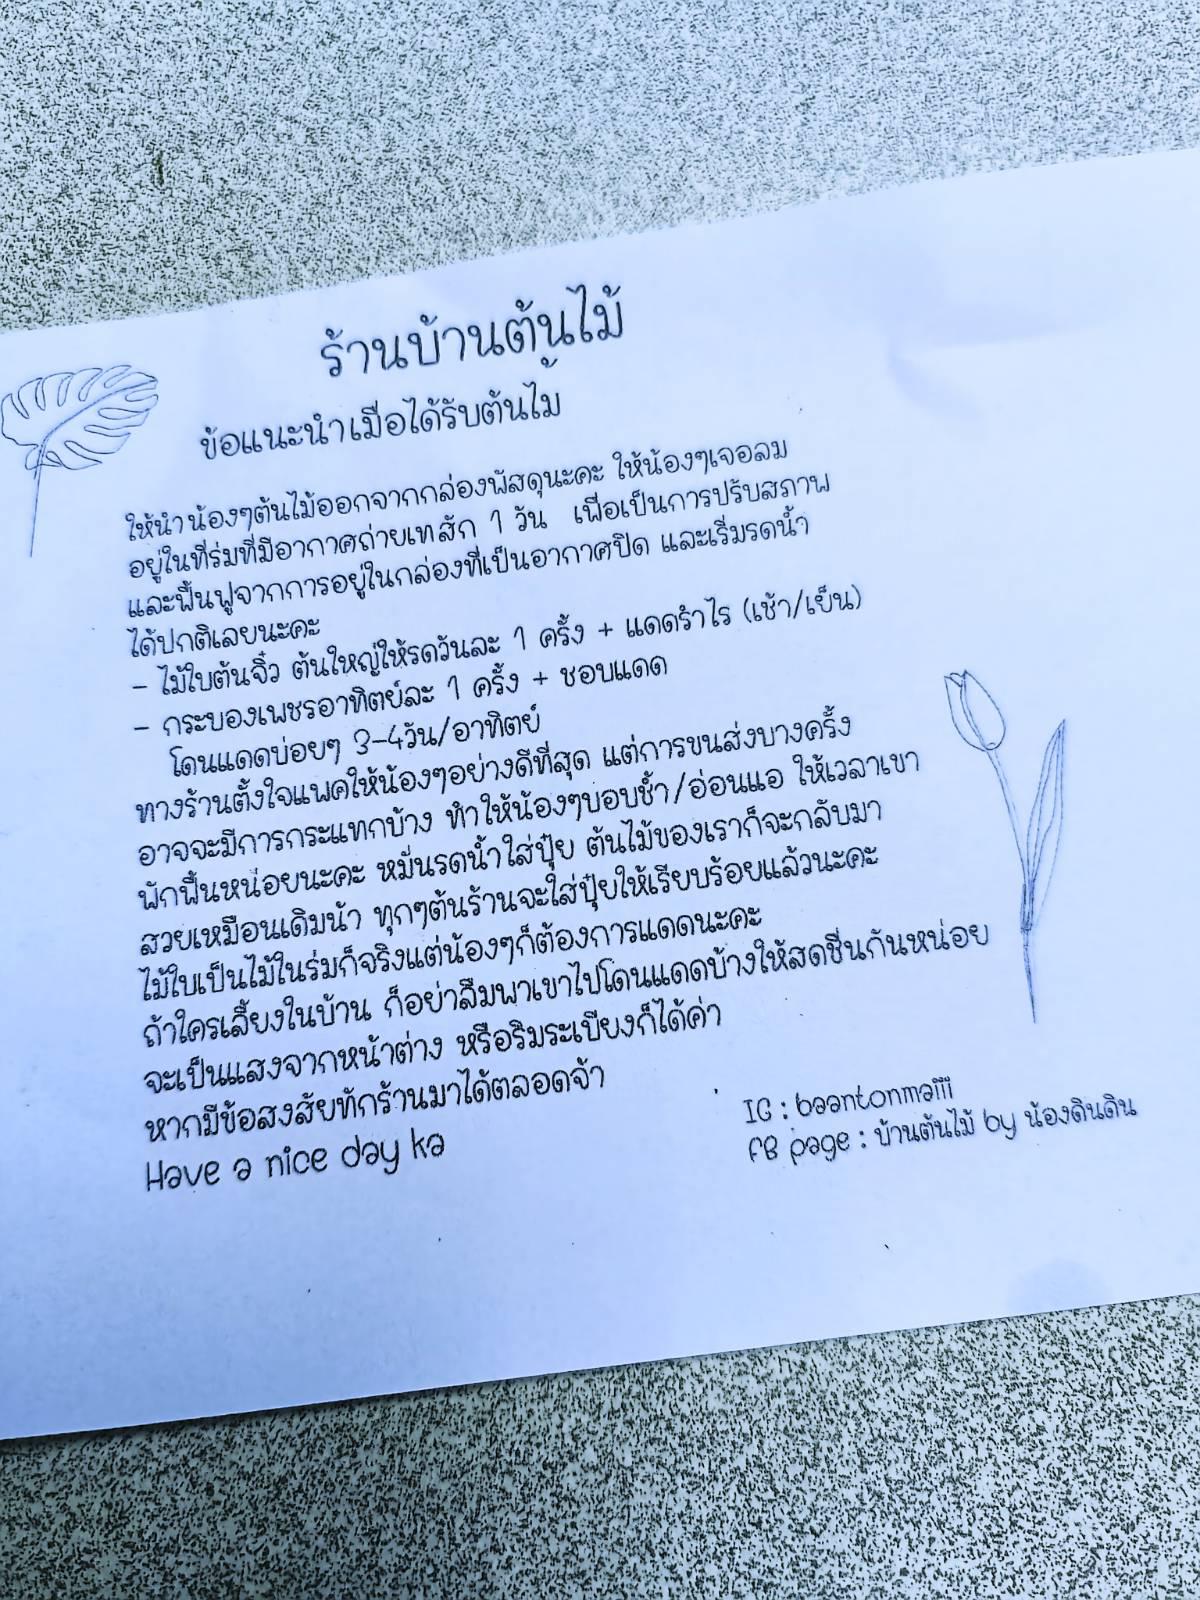 ร้านบ้านต้นไม้
ข้อแนะนำเมื่อได้รับต้นไม้
ให้นำน้องๆต้นไม้ออกจากกล่องพัสดุนะคะ ให้น้องๆเจอลม
อยู่ในที่ร่มที่มีอากาศถ่ายเทสัก 1 วัน เพื่อเป็นการปรับสภาพ
และฟื้นฟูจากการอยู่ในกล่องที่เป็นอากาศปิด และเริ่มรดน้ำ
ได้ปกติเลยนะคะ
- ไม้ใบต้นจิ๋ว ต้นใหญ่ให้รดวันละ 1 ครั้ง + แดดรำไร (เช้า/เย็น)
- กระบองเพชรอาทิตย์ละ 1 ครั้ง + ชอบแดด
โดนแดดบ่อยๆ 3-4วัน/อาทิตย์
ทางร้านตั้งใจแพคให้น้องๆอย่างดีที่สุด แต่การขนส่งบางครั้ง
อาจจะมีการกระแทกบ้าง ทำให้น้องๆบอบช้ำ/อ่อนแอ ให้เวลาเขา
พักฟื้นหน่อยนะคะ หมั่นรดน้ำใส่ปุ๋ย ต้นไม้ของเราก็จะกลับมา
สวยเหมือนเดิมน้า ทุกๆต้นร้านจะใส่ปุ๋ยให้เรียบร้อยแล้วนะคะ
ไม้ใบเป็นไม้ในร่มก็จริงแต่น้องๆก็ต้องการแดดนะคะ
ถ้าใครเลี้ยงในบ้าน ก็อย่าลืมพาเขาไปโดนแดดบ้างให้สดชื่นกันหน่อย
จะเป็นแสงจากหน้าต่าง หรือริมระเบียงก็ได้ค่า
หากมีข้อสงสัยทักร้านมาได้ตลอดจ้า
Have a nice day ka
IG : baantonmaiii
FB page : บ้านต้นไม้ by น้องดินดิน